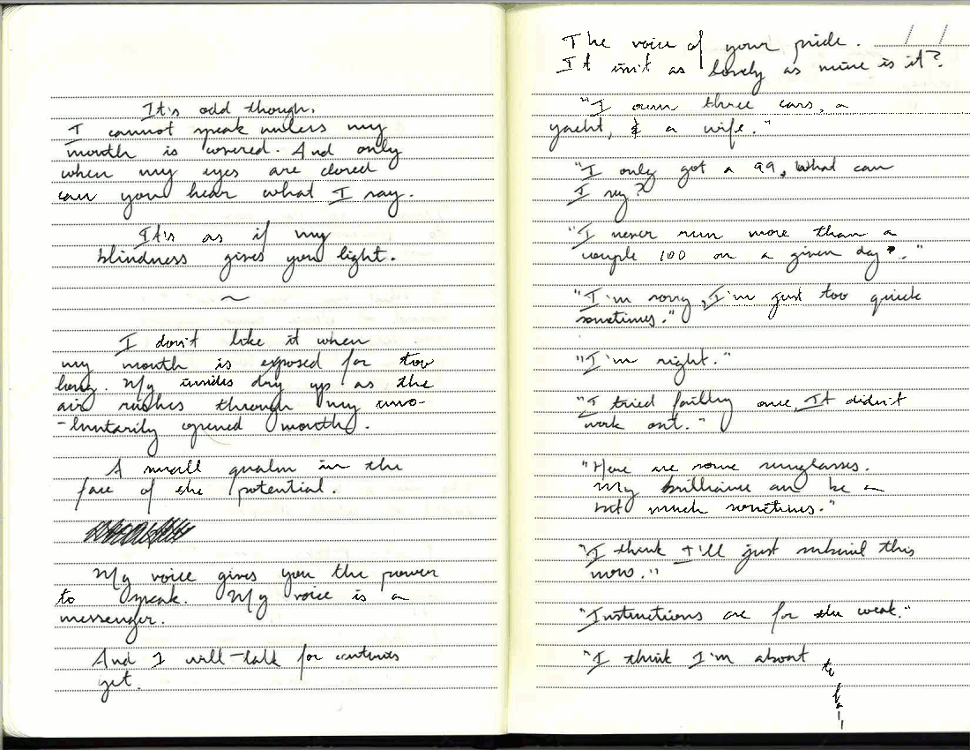 It's odd though.
I cannot speak unless my
mouth is covered. And only
when my eyes are closed
can you hear what I say.
It's as if my
blindness gives you light.
~
I don't like it when
my mouth is exposed for too
long. My insides dry up as the
air rushes through my invo-
-luntarily opened mouth.
A small qualm in the
face of the potential.
My voice gives you the power
to speak. My voice is a
messenger.
And I will talk for centuries
yet.
The voice of your pride.
It isn't as lovely as mine is it?
"I own three cars, a
yacht, & a wife."
"I only got a 99, what can
I say?
"I never run more than a
couple 100 on a given day."
"I'm sorry, I'm just too quick
sometimes."
"I'm right."
"I tried failing once, It didn't
work out."
"Here are some sunglasses.
My brilliance can be a
bit much sometimes."
"I think I'll just submit this
now."
"Instructions are for the weak."
"I think I'm about to
fall